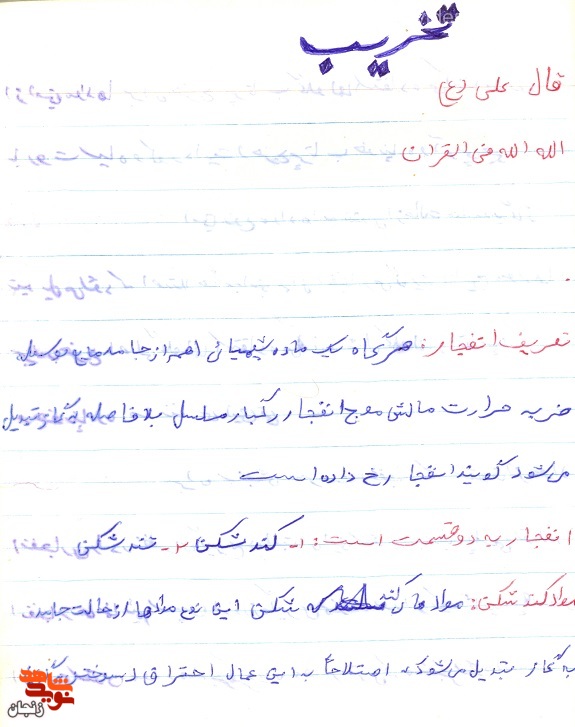 تخریب
قال علی (ع)
الله الله فی القران
تعریف انفجار: هرگاه یک ماده شیمیائی اعم از جامد مایع بوسیله
ضربه حرارت مالش موج انفجار رگبار مسلسل بلافاصله به گاز تبدیل
می شود گویند انفجار رخ داده است
انفجار به دو قسمت است: ۱- کند شکن ۲- تند شکن
مواد کند شکن: مواد کند شکن این نوع موادها از حالت جامد
به گاز تبدیل می شود که اصطلاحاً به این عمل احتراق سوختن
نوید شاهد
زنجان